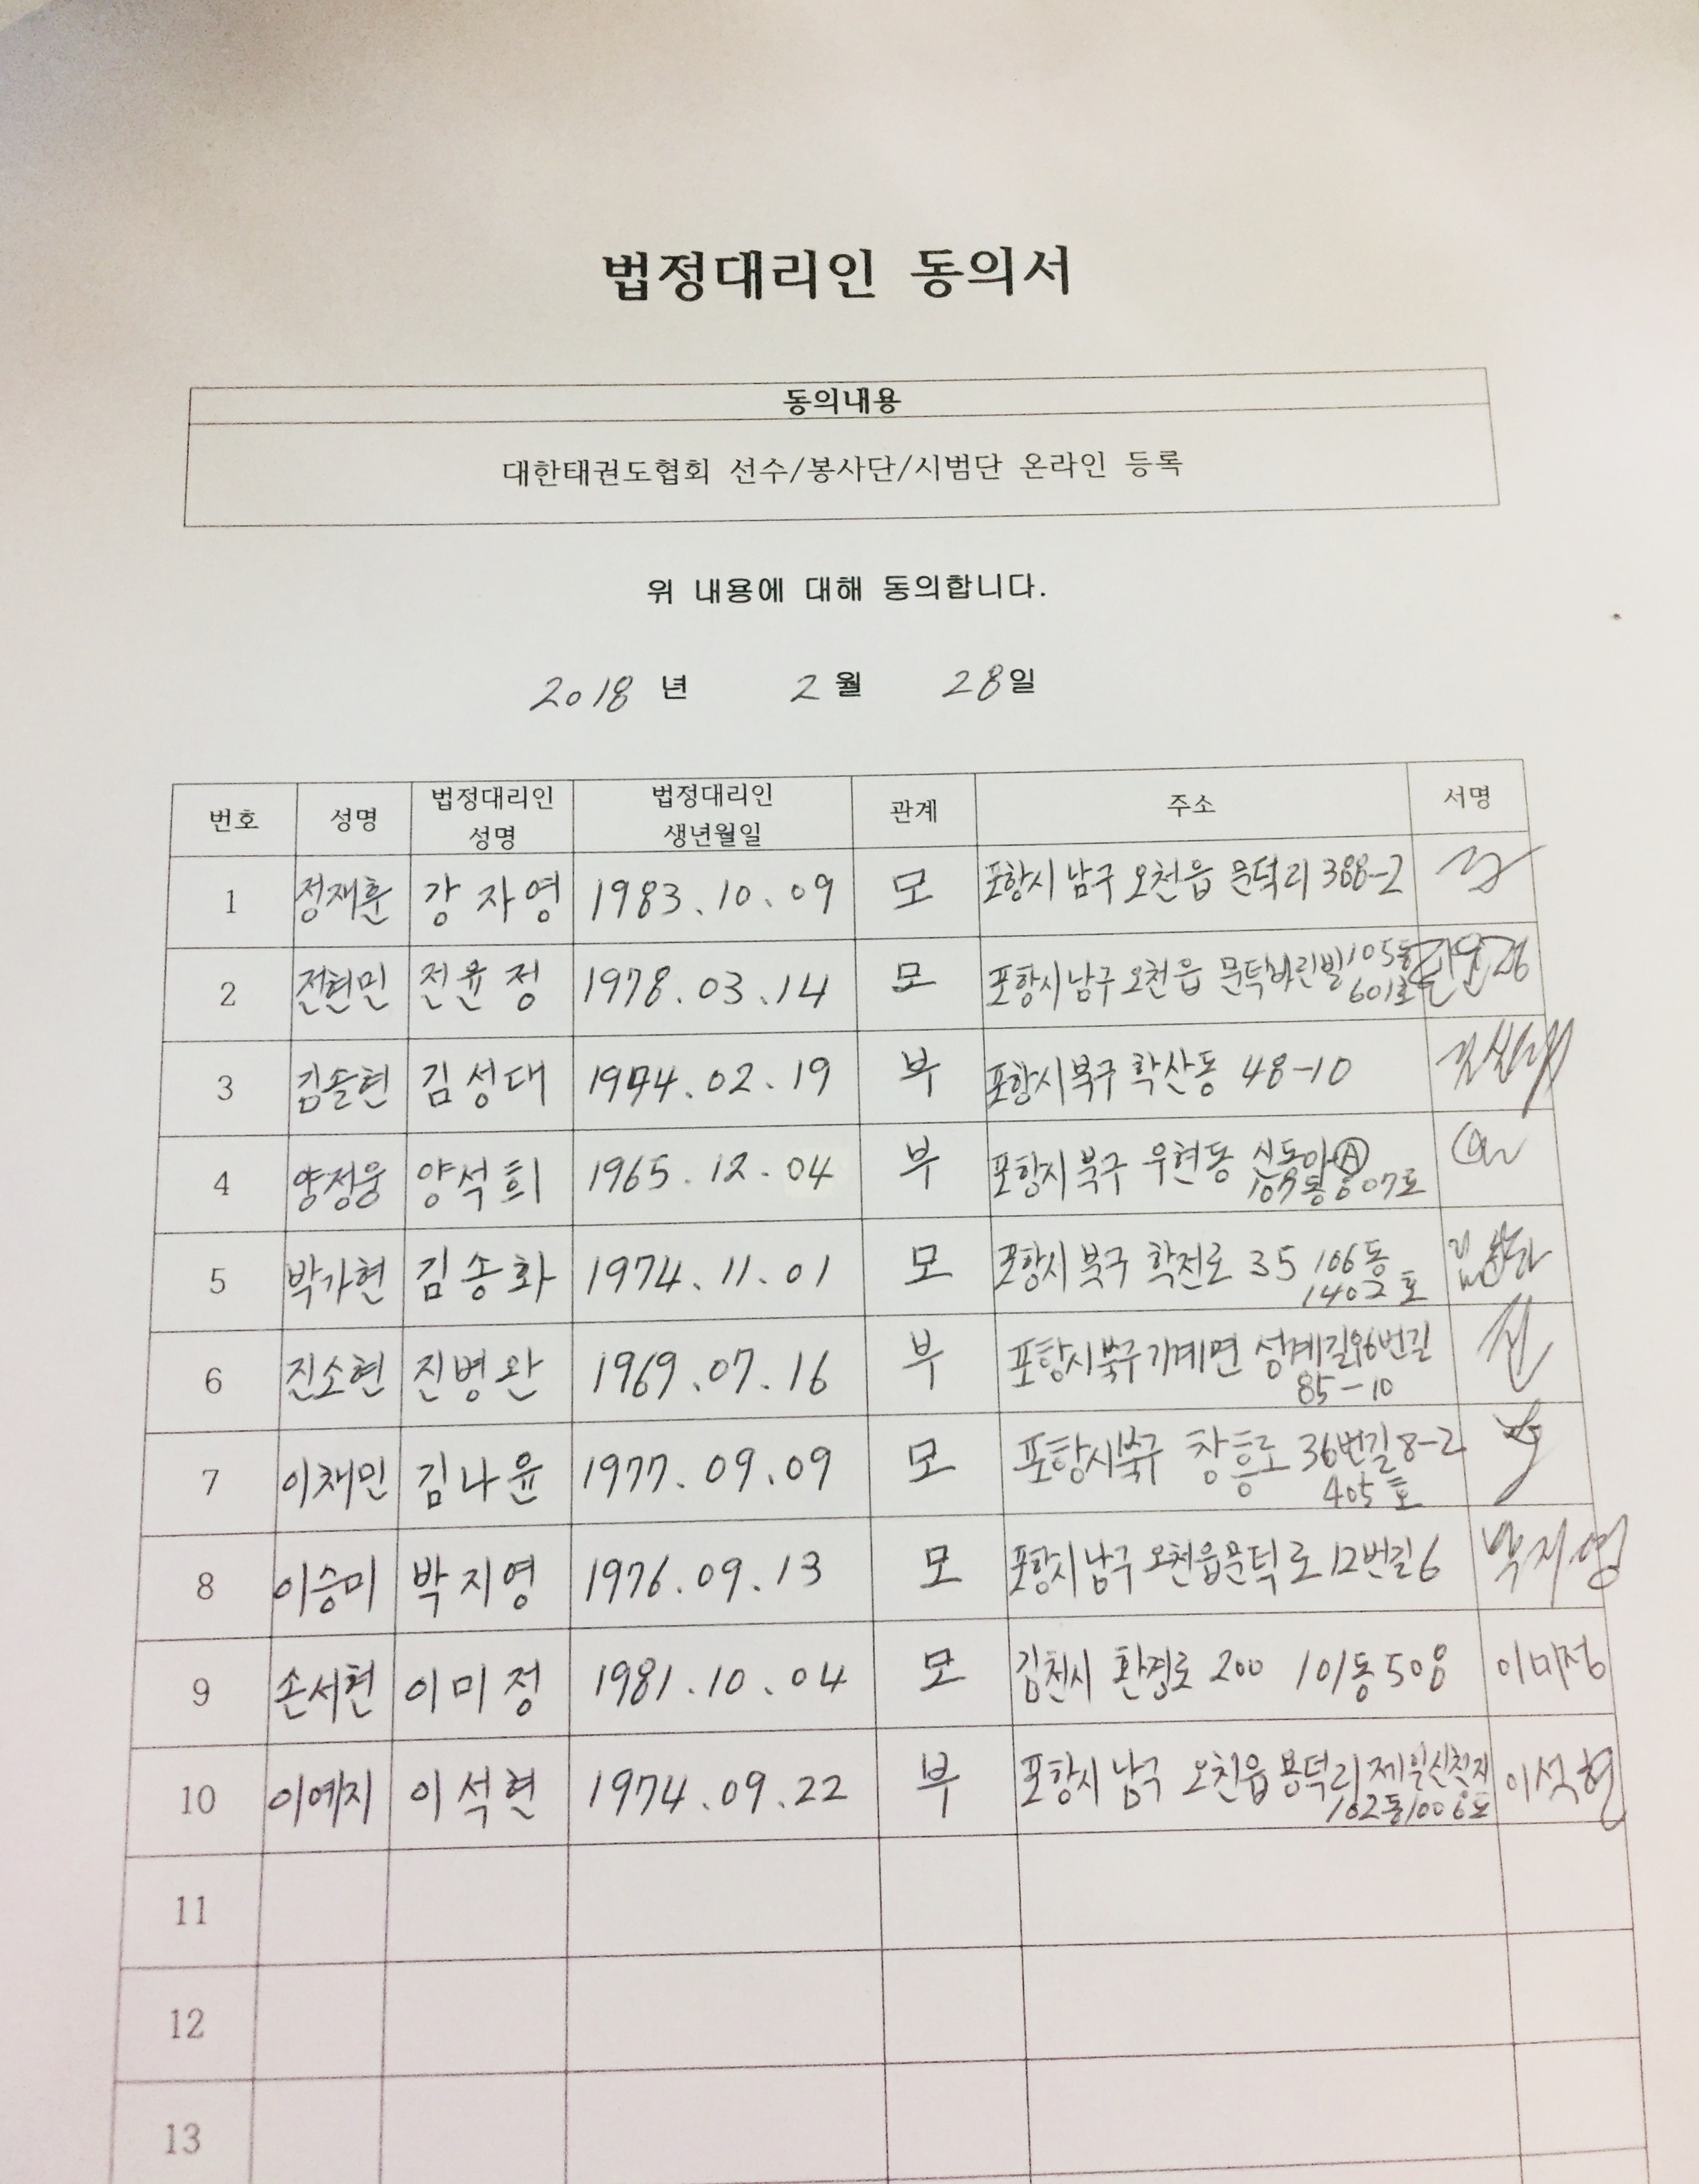 법정대리인 동의서
동의내용
대한태권도협회 선수/봉사단/시범단 온라인 등록
위 내용에 대해 동의합니다.
2018 년 2 월 28 일
번호 성명 법정대리인 성명 법정대리인 생년월일 관계 주소 서명
1 정재훈 강자영 1983.10.09 모 포항시 남구 오천읍 문덕리 388-2
2 전현민 전윤정 1978.03.14 모 포항시 남구 오천읍 문덕바린빌 105동 601호 전윤정
3 김솔현 김성대 1974.02.19 부 포항시 북구 학산동 48-10 김성대
4 양정웅 양석희 1965.12.04 부 포항시 북구 우현동 신동아Ⓐ 607호
5 박가현 김송화 1974.11.01 모 포항시 북구 학전로 35 106동 1402호 김송화
6 진소현 진병완 1969.07.16 부 포항시 북구 기계면 성계길 85-10 진
7 이채민 김나윤 1977.09.09 모 포항시 북구 창흥로 36번길 8-2 405호
8 이승미 박지영 1976.09.13 모 포항시 남구 오천읍 문덕로 12번길 6 박지영
9 손서현 이미정 1981.10.04 모 김천시 환경로 200 101동 508 이미정
10 이예지 이석현 1974.09.22 부 포항시 남구 오천읍 용덕리 제일신천지 102동 1006호 이석현
11
12
13